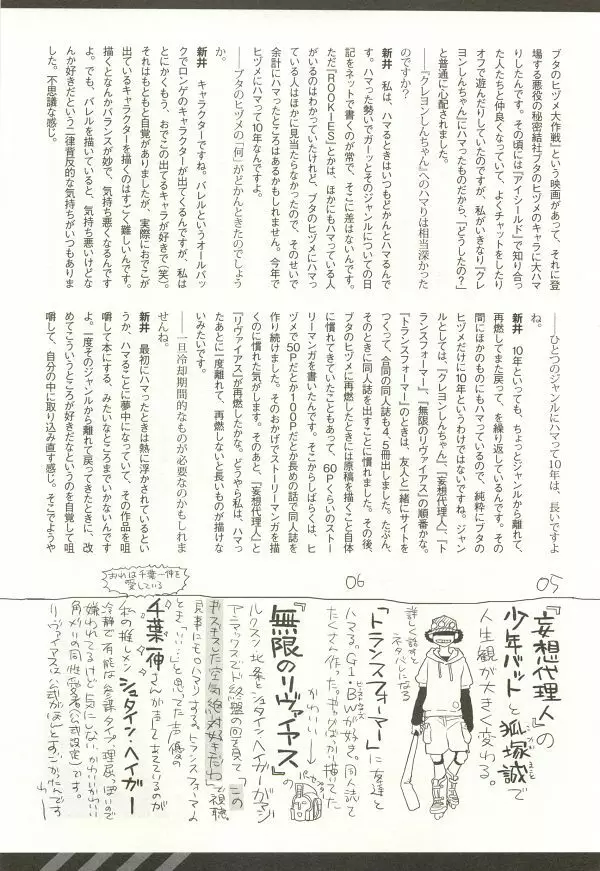 ブタのヒヅメ大作戦』という映画があって、それに登
場する悪役の秘密結社ブタのヒヅメのキャラに大ハマ
りしたんです。その頃には『アイシールド』で知り合っ
た人たちと仲良くなっていて、よくチャットをしたり
オフで遊んだりしていたのですが、私がいきなり『クレ
ヨンしんちゃん』にハマったものだから、「どうしたの？」
と普通に心配されました。
――『クレヨンしんちゃん』へのハマりは相当深かった
のですか？
新井　私は、ハマるときはいつもどかんとハマるんで
す。ハマった勢いでガーッとそのジャンルについての日
記をネットで書くのが常で、そこに差はないんです。
ただ『ROOKIES』とかは、ほかにもハマっている人
がいるのはわかっていたけれど、ブタのヒヅメにハマっ
ている人はほかに見当たらなかったので、そのせいで
余計にハマったところはあるかもしれません。今年で
ヒヅメにハマって10年なんですよ。
――ブタのヒヅメの「何」がどかんときたのでしょう
か。
新井　キャラクターですね。バレルというオールバッ
クでロンゲのキャラクターが出てくるんですが、私は
とにかくもう、おでこの出てるキャラが好きで（笑）。
それはもともと自覚がありましたが、実際におでこが
出ているキャラクターを描くのはすごく難しいんです。
描くとなんかバランスが妙で、気持ち悪くなるんです
よ。でも、バレルを描いていると、気持ち悪いけどな
んか好きだという二律背反的な気持ちがいつもありま
した。不思議な感じ。
――ひとつのジャンルにハマって10年は、長いですよ
ね。
新井　10年といっても、ちょっとジャンルから離れて、
再燃してまた戻って、を繰り返しているんです。その
間にほかのものにもハマっているので、純粋にブタの
ヒヅメだけに10年というわけではないですね。ジャン
ルとしては、『クレヨンしんちゃん』、『妄想代理人』、『ト
ランスフォーマー』、『無限のリヴァイアス』の順番かな。
『トランスフォーマー』のときは、友人と一緒にサイトを
つくって、合同の同人誌も4、5冊出しました。たぶん、
そのときに同人誌を出すことに慣れました。その後、
ブタのヒヅメに再燃したときには原稿を描くこと自体
に慣れてきていたこともあって、60Pくらいのストー
リーマンガを書いたんです。そこからしばらくは、ヒ
ヅメで50Pだとか100Pだとか長めの話で同人誌を
作り続けました。そのおかげでストーリーマンガを描
くのに慣れた気がします。そのあと、『妄想代理人』と
『リヴァイアス』が再燃したかな。どうやら私は、ハマっ
たあとに一度離れて、再燃しないと長いものが描けな
いみたいです。
――一旦冷却期間的なものが必要なのかもしれま
せんね。
新井　最初にハマったときは熱に浮かされているとい
うか、ハマることに夢中になっていて、その作品を咀
嚼して本にする、みたいなところまでいかないんです
よ。一度そのジャンルから離れて戻ってきたときに、改
めてこういうところが好きだなというのを自覚して咀
嚼して、自分の中に取り込み直す感じ。そこでようや
05
『妄想代理人』の
少年バットと狐塚誠で
人生観が大きく変わる。
詳しく話すと
ネタバレになる
06
「トランスフォーマー」に友達と
ハマる。G1・BWが好き。同人誌て
たくさん作った。
かわいい
『無限のリヴァイアス』の
ルクスン北条とシュタイン・ヘイガーが
アニマックスで
ギスギスした空気絶対好きだわ」で視聴。
見事にもハマりする。トランスフォーマーの
とき「い…」と思ってた声優の
千葉一伸さんが声をあてているのが
私の推しメン シュタイン・ヘイガー
冷静で有能な参謀タイプ。理屈っぽいので
嫌われてるけど気にしない かわいいかわいい
角メガの同性愛者（公式設定）です。
リヴァイアスは公式がほんとすごかったんです
おれは千葉一伸を
愛している